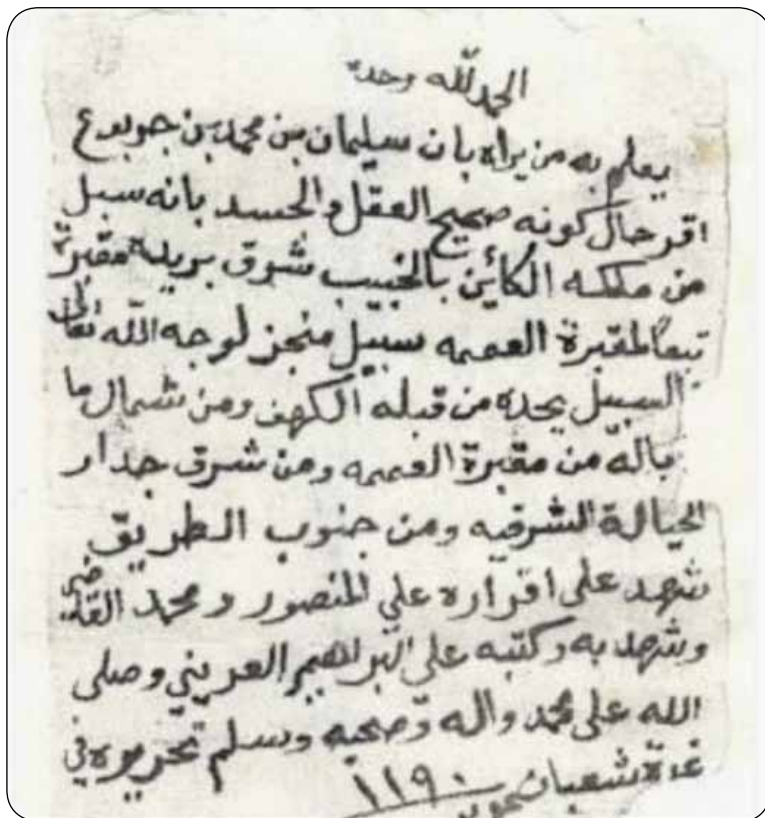 الحمد لله وحده
يعلم به من يراه بان سليمان بن محمد بن جوبوع
اقر حال كونه صحيح العقل والجسد بانه سبل
من ملكه الكائن بالخبيب شرق بريدة مقبرة
تبعاً لمقبرة العممه سبيل منجز لوجه الله تعالى
السبيل يحده من قبله الكهف ومن شمال ما
باله من مقبرة العممه ومن شرق جدار
الحيالة الشرقيه ومن جنوب الطريق
شهد على اقراره علي المنصور ومحمد القاضي
وشهد به وكتبه علي البراهيم العريني وصلى
الله على محمد واله وصحبه وسلم تحريره في
غرة شعبان ١١٩٠